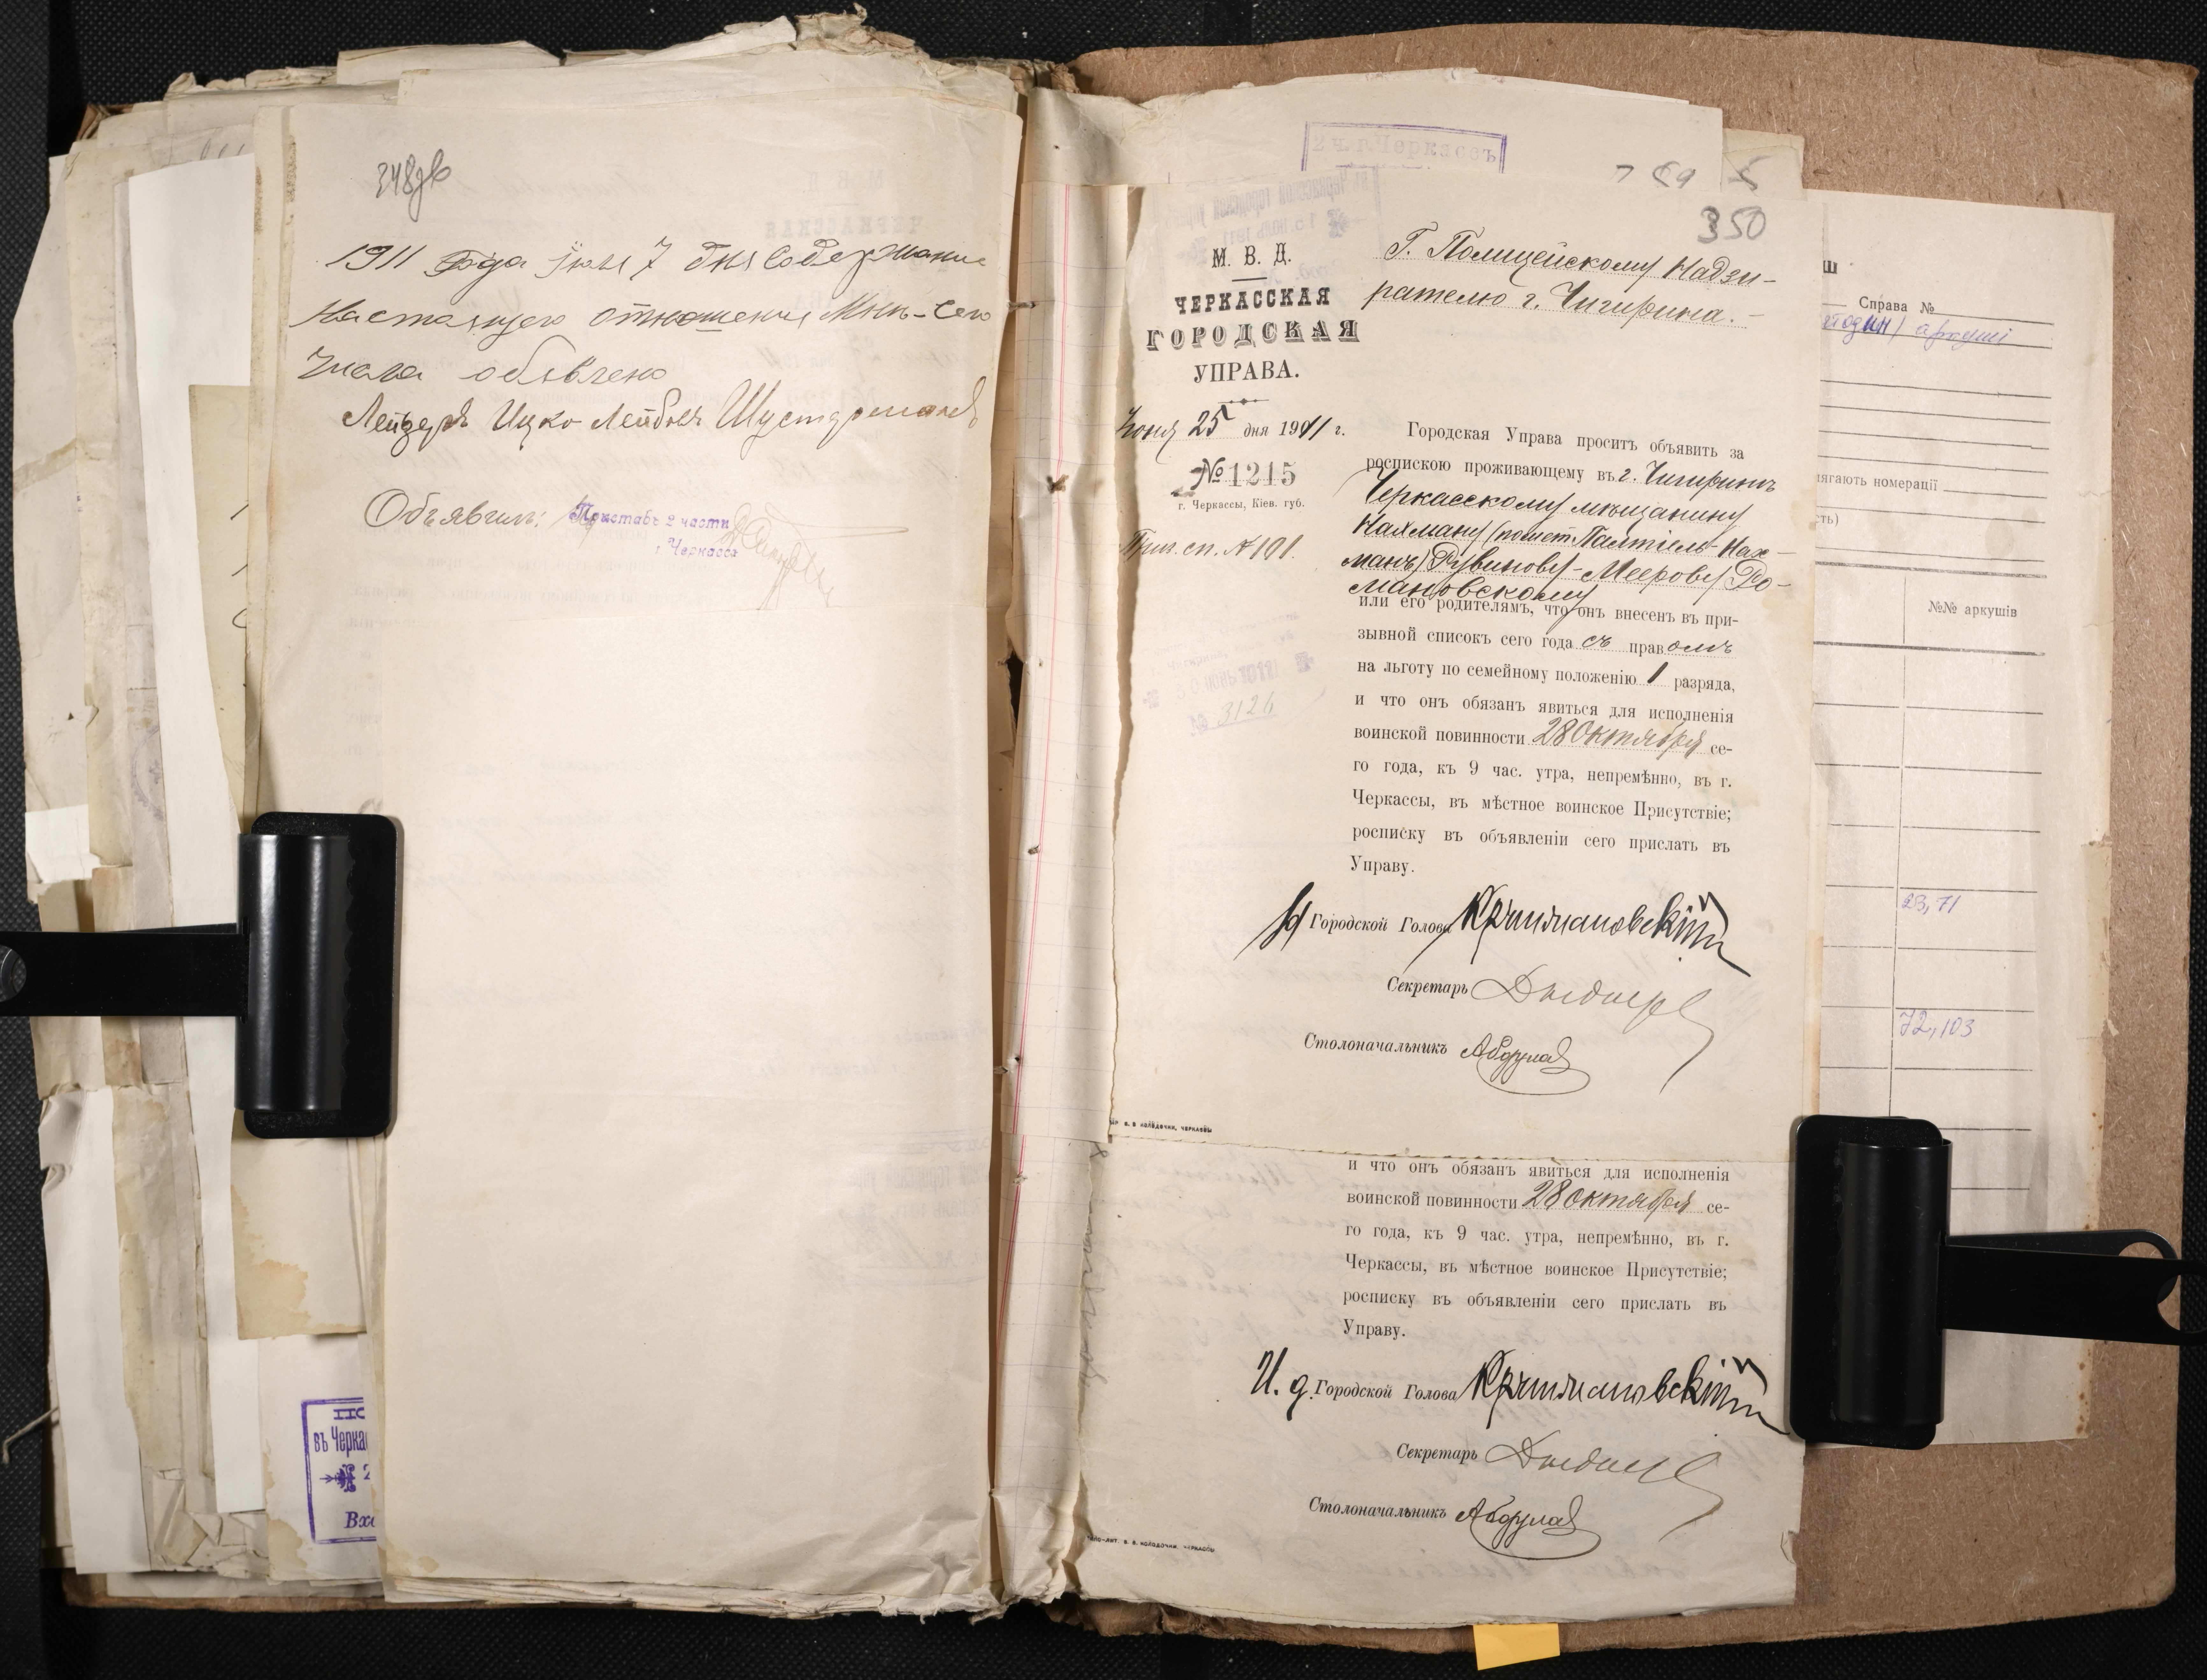 348зв
1911 года Июля 7 дня Содержание
настоящего отношения Мнѣ-сего
числа объявлено
Лейзеръ Ицко Лейбовъ Шустерманъ
Объявилъ:
Приставъ 2 части
г. Черкассъ
въ Черка
2
Вхо
2 ч. г. Черкассъ
350
М. В. Д.
ЧЕРКАССКАЯ
ГОРОДСКАЯ
УПРАВА.
Іюня 25 дня 1911 г.
№ 1215
г. Черкассы, Кіев. губ.
Приз. сп. № 101.
3126
Г. Полицейскому Надзи-
рателю г. Чигирина.-
Городская Управа проситъ объявить за
роспискою проживающему въ г. Чигиринѣ
Черкасскому мѣщанину
Нахману (по мет. Палтіель-Нах-
манъ) Рувинову-Меерову Ро-
мановскому
или его родителямъ, что онъ внесенъ въ при-
зывной списокъ сего года съ правомъ
на льготу по семейному положенію 1 разряда,
и что онъ обязанъ явиться для исполненія
воинской повинности 28 Октября се-
го года, къ 9 час. утра, непремѣнно, въ г.
Черкассы, въ мѣстное воинское Присутствіе;
росписку въ объявленіи сего прислать въ
Управу.
Городской Голова
Секретарь
Столоначальникъ
В. В. КОЛОДОЧКИ, ЧЕРКАССЫ
и что онъ обязанъ явиться для исполненія
воинской повинности 28 октября се-
го года, къ 9 час. утра, непремѣнно, въ г.
Черкассы, въ мѣстное воинское Присутствіе;
росписку въ объявленіи сего прислать въ
Управу.
И. д. Городской Голова
Секретарь
Столоначальникъ
ЛИТ. В. В. КОЛОДОЧКИ, ЧЕРКАССЫ
Ш
Справа №
аркуші
лягають номерації
ть)
№№ аркушів
23, 71
72, 103